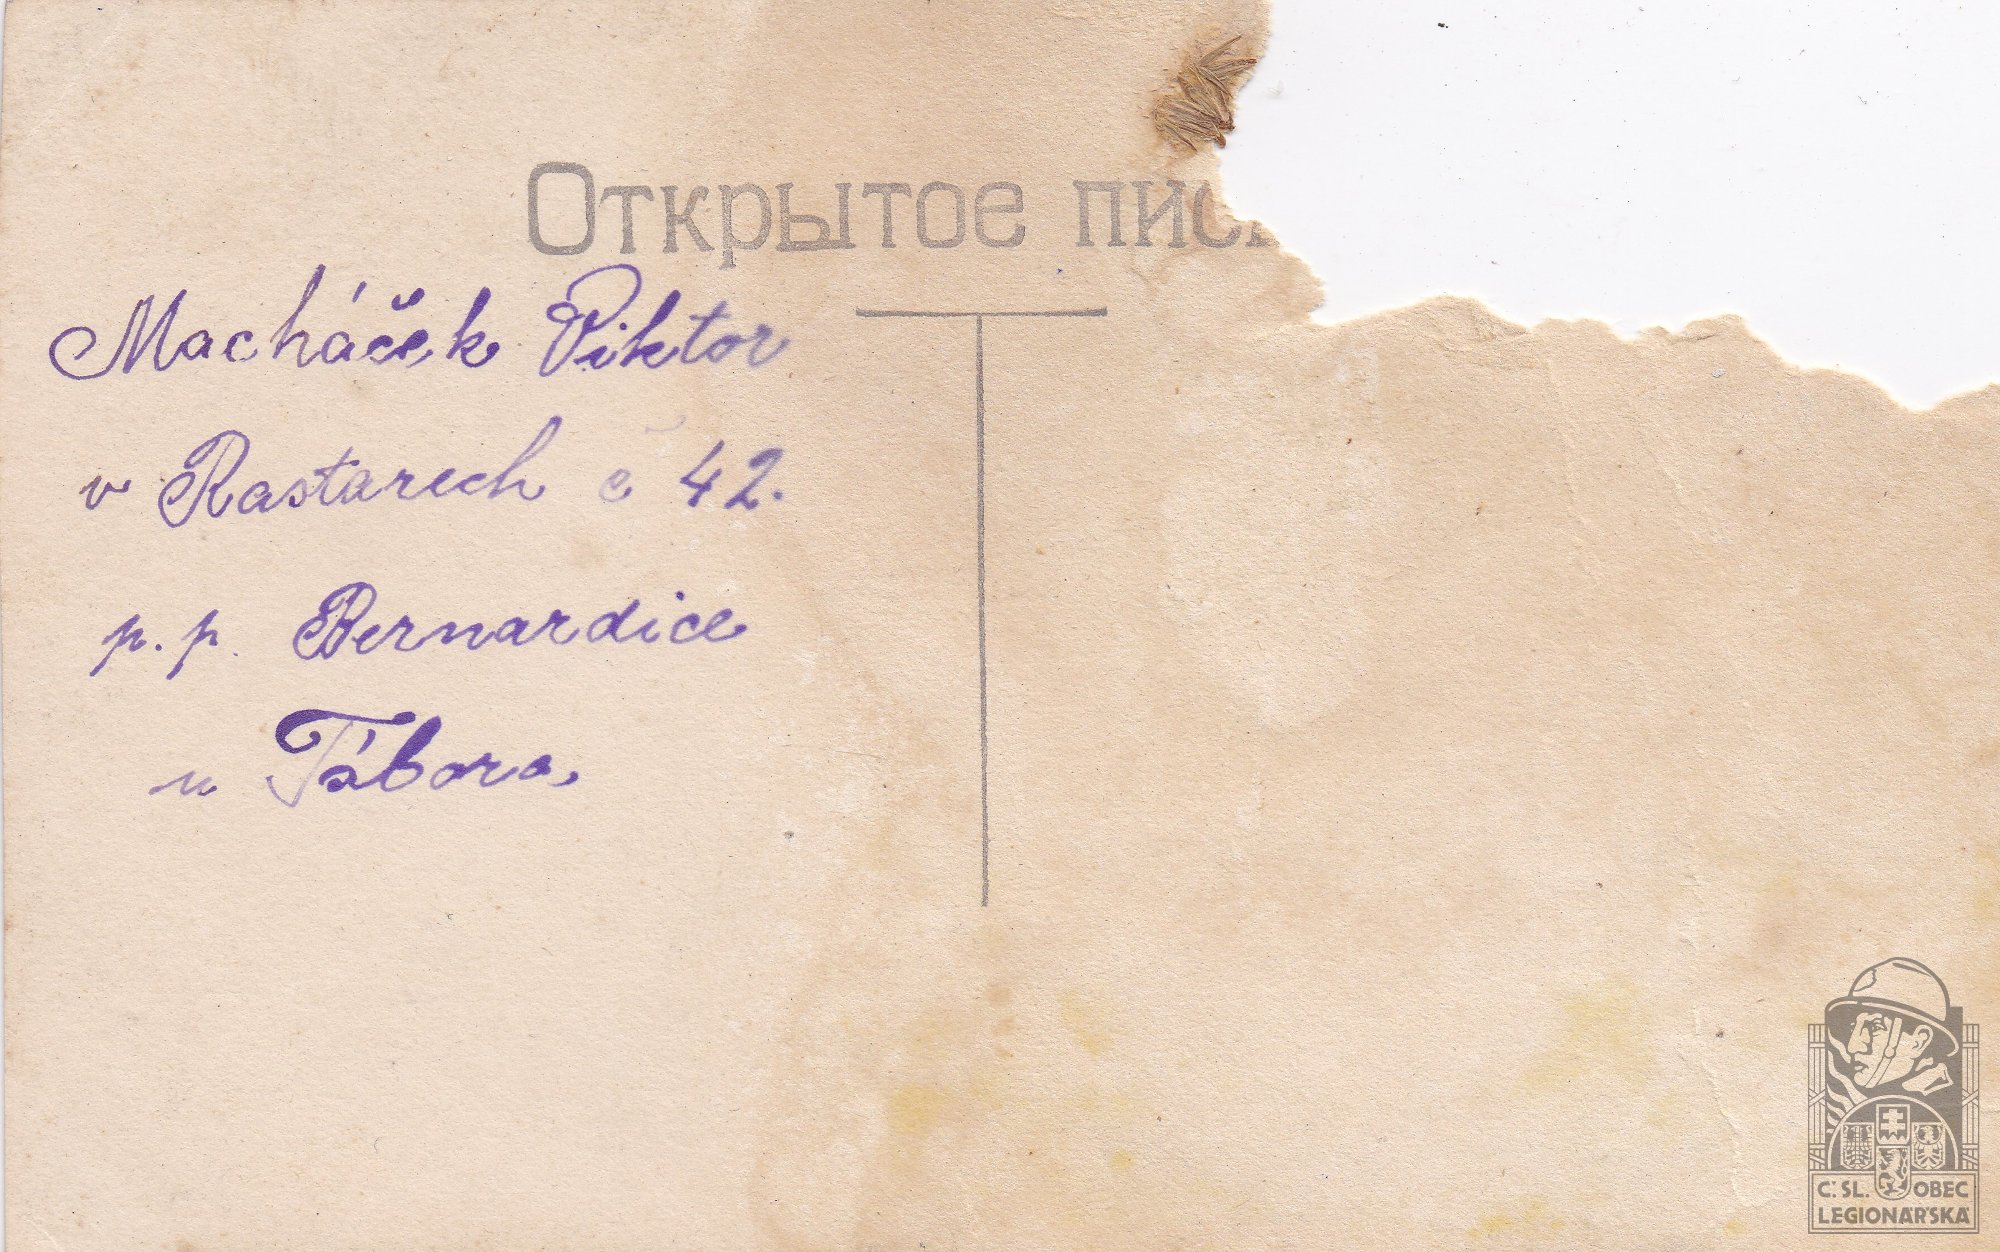 Открытое пис
Macháček Viktor
v Rastarech č 42.
p. p. Bernardice
u Tábora,
Č. SL. OBEC
LEGIONÁŘSKÁ